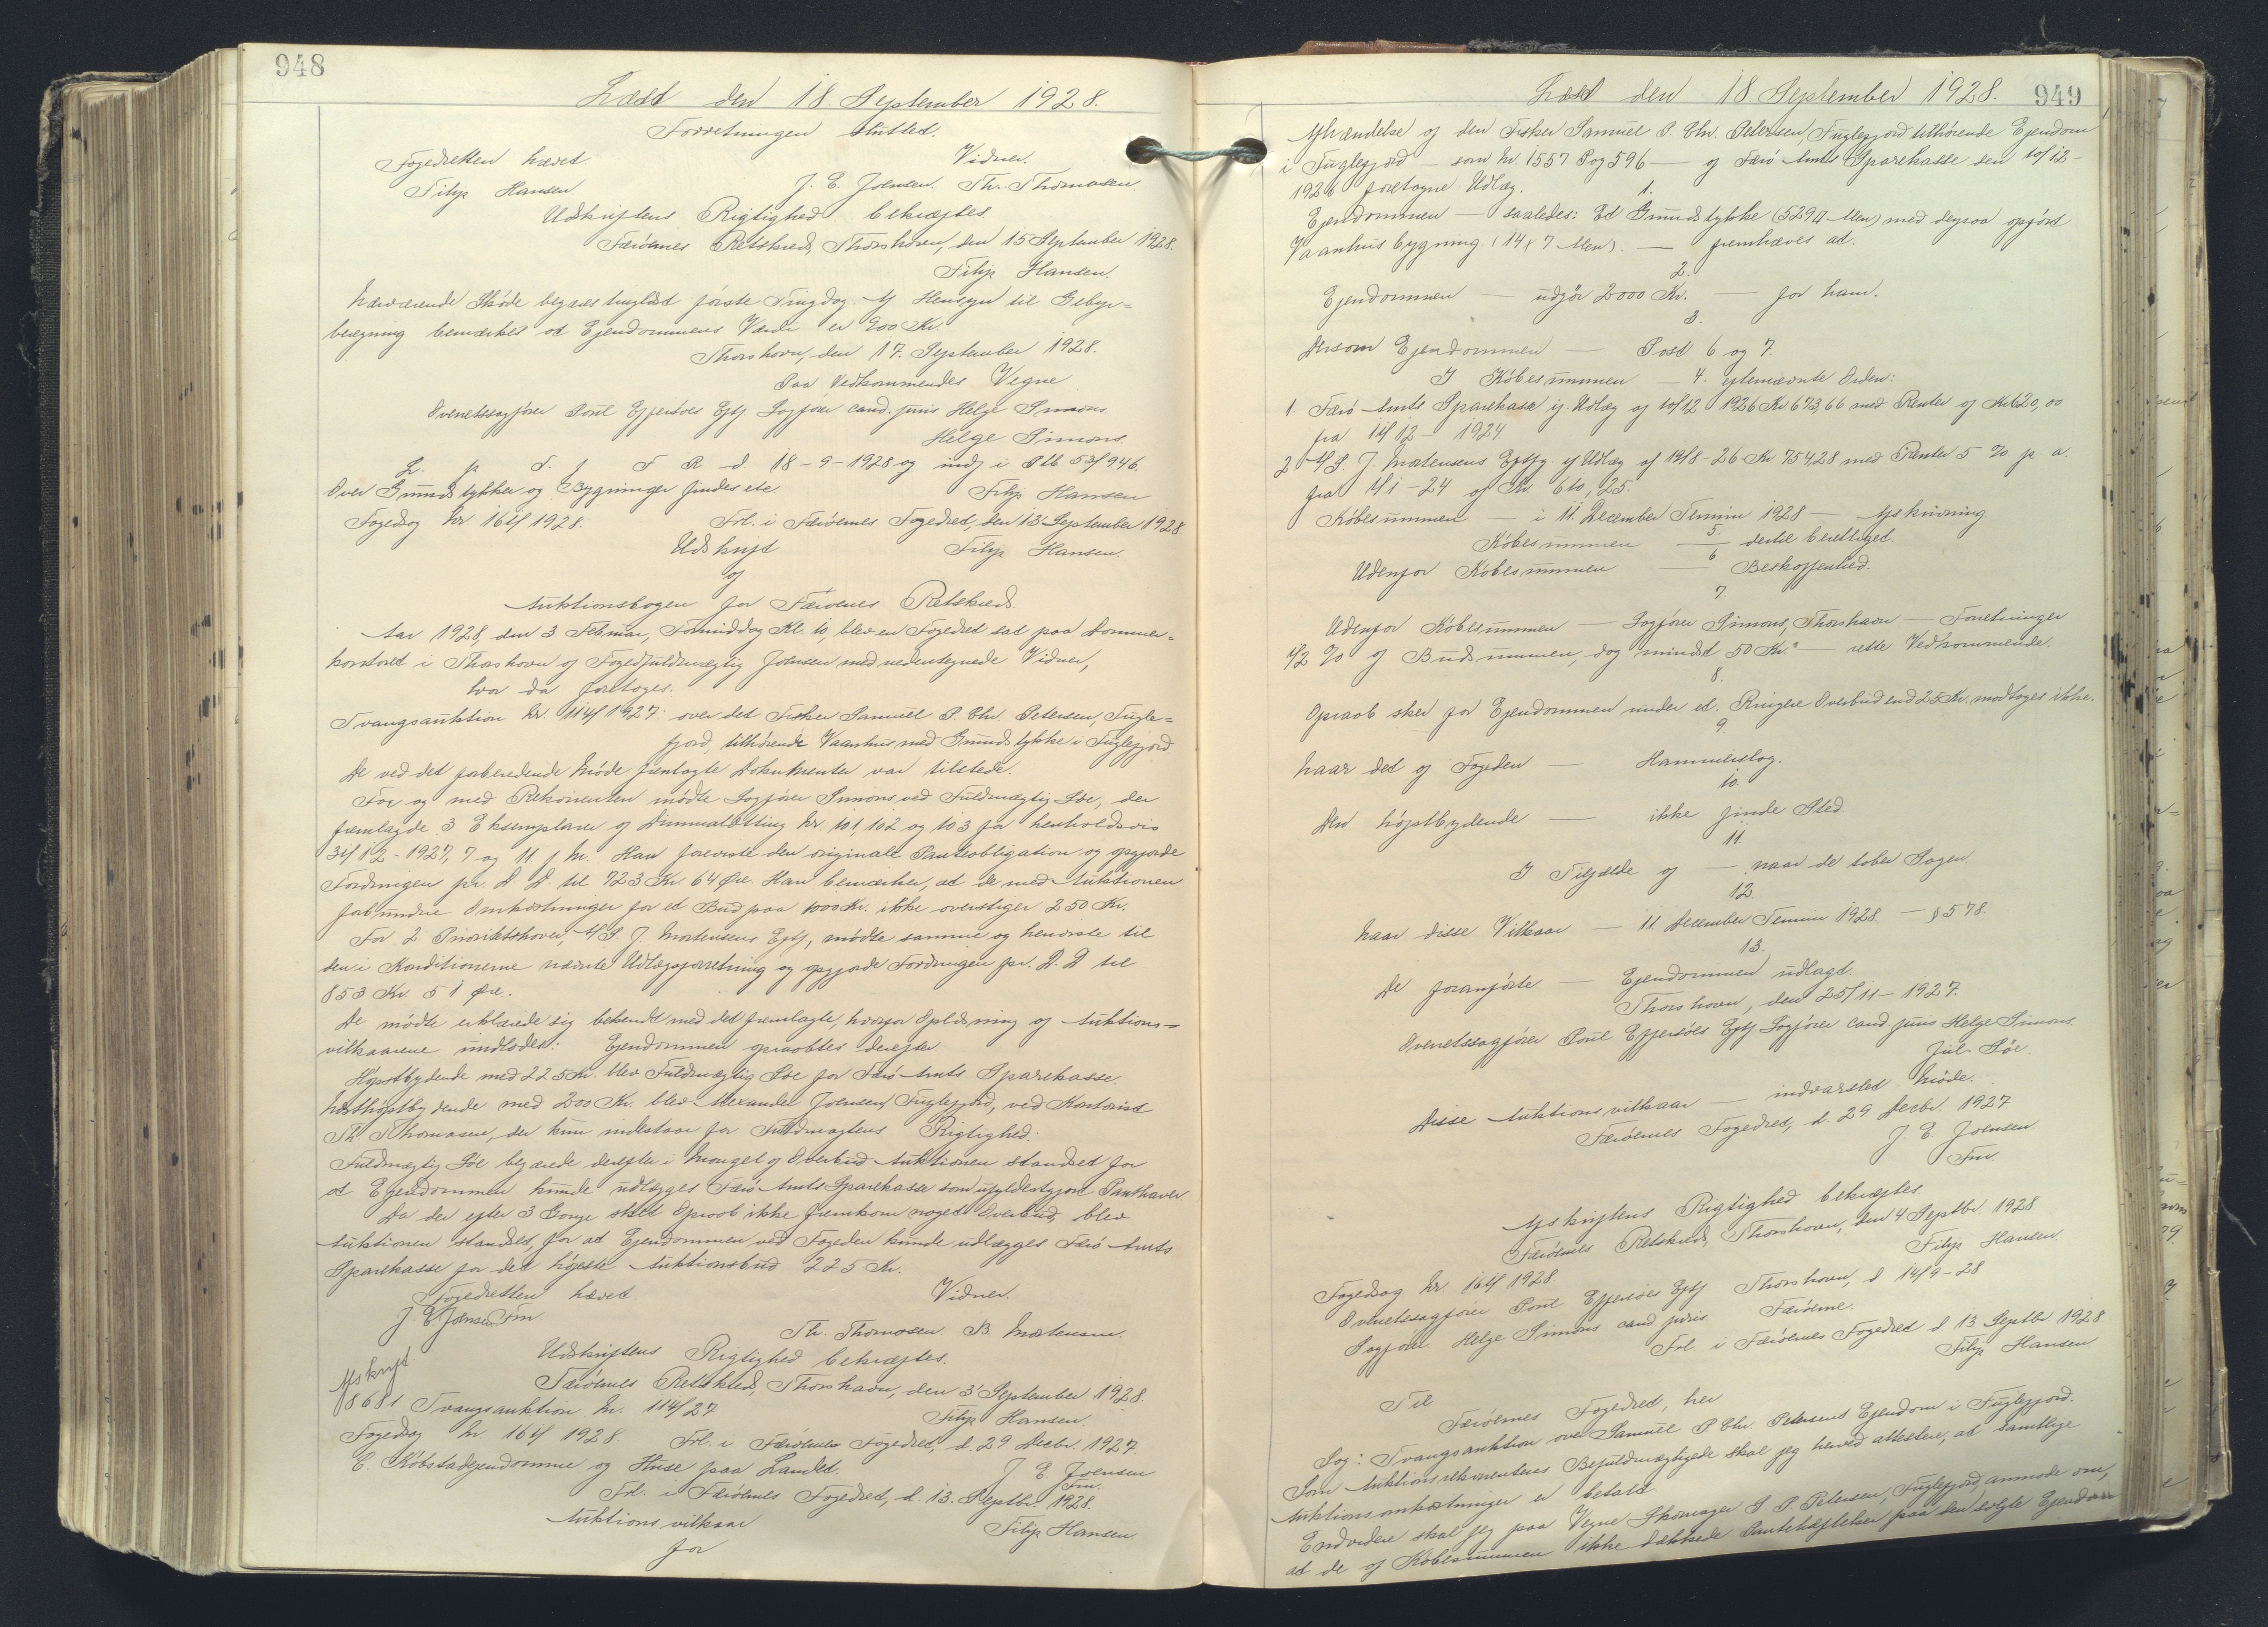 948
Læst den 18. September 1928.
Forretningen sluttet.
Fogedretten hævet. Vidner.
Filip Hansen J. E. Joensen. Th. Thomasen.
Udskriftens Rigtighed bekræftes.
Færøernes Retskreds, Thorshavn, den 15 September 1928.
Filip Hansen.
Nærværende Skøde begæres tinglæst første Tingdag. Af Hensyn til Gebyr=
beregning bemærkes at Ejendommens Værdi er 900 Kr.
Thorshavn, den 17. September 1928.
Paa Vedkommendes Vegne
Overretssagfører Poul Effersøes Eftf. Sagfører cand. juris Helge Simons
Helge Simons.
L. p. T. f F R d 18-9-1928 og indf i Ptb 53/946.
Over Grundstykker og Bygninger findes etc. Filip Hansen
Fogedsag Nr. 164/1928. Frl. i Færøernes Fogedret, den 13 September 1928
Udskrift Filip Hansen.
af
Auktionsbogen for Færøernes Retskreds.
Aar 1928, den 3 Februar, Formiddag Kl. 10, blev en Fogedret sat paa Dommer=
kontoret i Thorshavn af Fogedfuldmægtig Joensen med nedentegnede Vidner,
hvor da foretoges.
Tvangsauktion Nr. 114/1927: over det Fisker Samuel P. Chr. Petersen, Fugle=
fjord, tilhørende Vaanhus med Grundstykke i Fuglefjord.
De ved det forberedende Møde fremlagte Dokumenter var tilstede.
For og med Rekvirenten mødte Sagfører Simons ved Fuldmægtig Søe, der
fremlagde 3 Eksemplarer af Dimmalætting Nr. 101, 102 og 103 for henholdsvis
31/12-1927, 7 og 11 f. M. Han foreviste den originale Panteobligation og opgjorde
Fordringen pr. D. D. til 723 Kr. 64 Øre. Han bemærker, at de med Auktionen
forbundne Omkostninger for et Bud paa 1000 Kr. ikke overstiger 250 Kr.
For 2 Prioritetshaver, A/S. J. Mortensens Eftf, mødte samme og henviste til
den i Konditionerne nævnte Udlægsforretning og opgjorde Fordringen pr. D. D til
853 Kr. 51 Øre.
De mødte erklærede sig bekendt med det fremlagte, hvorfor Oplæsning af Auktions=
vilkaarene undlodes: Ejendommen opraabtes derefter.
Højstbydende med 225 Kr. blev Fuldmægtig Søe for Færø Amts Sparekasse.
Næsthøjstbydende med 200 Kr. blev Alexander Joensen, Fuglefjord, ved Kontorist
Th. Thomasen, der kun indestaar for Fuldmagtens Rigtighed.
Fuldmægtig Søe begærede derefter i Mangel af Overbud Auktionen standset for
at Ejendommen kunde udlægges Færø Amts Sparekasse som ufyldestgjort Panthaver.
Da der efter 3 Gange sket Opraab ikke fremkom noget Overbud, blev
Auktionen standset, for at Ejendommen ved Fogeden kunde udlægges Færø Amts
Sparekasse for det højeste Auktionsbud 225 Kr.
Fogedretten hævet. Vidner.
J. E. Joensen Fm. Th. Thomasen. B. Mortensen.
Udskriftens Rigtighed bekræftes.
Færøernes Retskreds, Thorshavn, den 3' September 1928.
Afskrift
8681 Tvangsauktion Nr. 114/27 Filip Hansen.
Fogedsag Nr. 164/1928. Frl. i Færøernes Fogedret, d. 29 Decbr. 1927.
C. Købstadejendomme og Huse paa Landet. J. E. Joensen
Fm.
Frl. i Færøernes Fogedret, d. 13. Septbr. 1928.
Auktionsvilkaar Filip Hansen
for
Læst den 18 September 1928. 949
Afhændelse af den Fisker Samuel P. Chr. Petersen, Fuglefjord tilhørende Ejendom
i Fuglefjord — som Nr. 1557 P og 596 — af Færø Amts Sparekasse den 10/12-
1926 foretagne Udlæg.
1.
Ejendommen — saaledes: Et Grundstykke (529 □ Alen) med derpaa opført
Vaanhusbygning (14 x 7 Alen). — fremhæves at.
2.
Ejendommen — udgør 2000 Kr. — for ham.
3.
Dersom Ejendommen — Post 6 og 7.
I Købesummen — 4. eftenævnte Orden:
1. Færø Amts Sparekasse if. Udlæg af 10/12 1926 Kr 673,66 med Renter af Kr 620,00
fra 11/12- 1924
2 A/S. J. Mortensens Eftf if Udlæg af 19/8-26 Kr 754,28 med Renter 5 % p. a.
fra 1/1-24 af Kr. 610,25.
Købesummen — i 11. December Termin 1928 — Afskrivning
5.
Købesummen — dertil berettiget.
6
Udenfor Købesummen — Beskaffenhed.
7.
Udenfor Købesummen — Sagfører Simons, Thorshavn — Forretninger
1/2 % af Budsummen, dog mindst 50 Kr. — rette Vedkommende.
8.
Opraab sker for Ejendommen under et. Ringere Overbud end 25 Kr. modtages ikke.
9.
Naar det af Fogeden — Hammerslag.
10.
Den højstbydende — ikke finde Sted.
11.
I Tilfælde af — naar de taber Sagen.
12.
Naar disse Vilkaar — 11. December Termin 1928 — § 578.
13.
De foranførte — Ejendommen udlagt.
Thorshavn, den 25/11-1927.
Overretssagfører Poul Effersøes Eftf. Sagfører cand. juris Helge Simons
Jul. Søe.
Disse Auktionsvilkaar — indvarslet Møde.
Færøernes Fogedret, d. 29 Decbr. 1927
J. E. Joensen
Fm.
Afskriftens Rigtighed bekræftes.
Færøernes Retskreds, Thorshavn, den 4 Septbr 1928
Filip Hansen
Fogedsag Nr. 164/1928
Overretssagfører Poul Effersøes Eftf Thorshavn, d 14/9-28
Sagfører Helge Simons cand juris. Færøerne.
Frl. i Færøernes Fogedret d. 13 Septbr 1928
Filip Hansen
Til
Færøernes Fogedret, her
Sag: Tvangsauktion over Samuel P. Chr. Petersens Ejendom i Fuglefjord.
Som Auktionsrekvirentens Befuldmægtigede skal jeg herved attestere, at samtlige
Auktionsomkostninger er betalt.
Endvidere skal jeg paa Vegne Skomager S. P. Petersen, Fuglefjord, anmode om,
at de af Købesummen ikke dækkede Pantehæftelser paa den solgte Ejendom